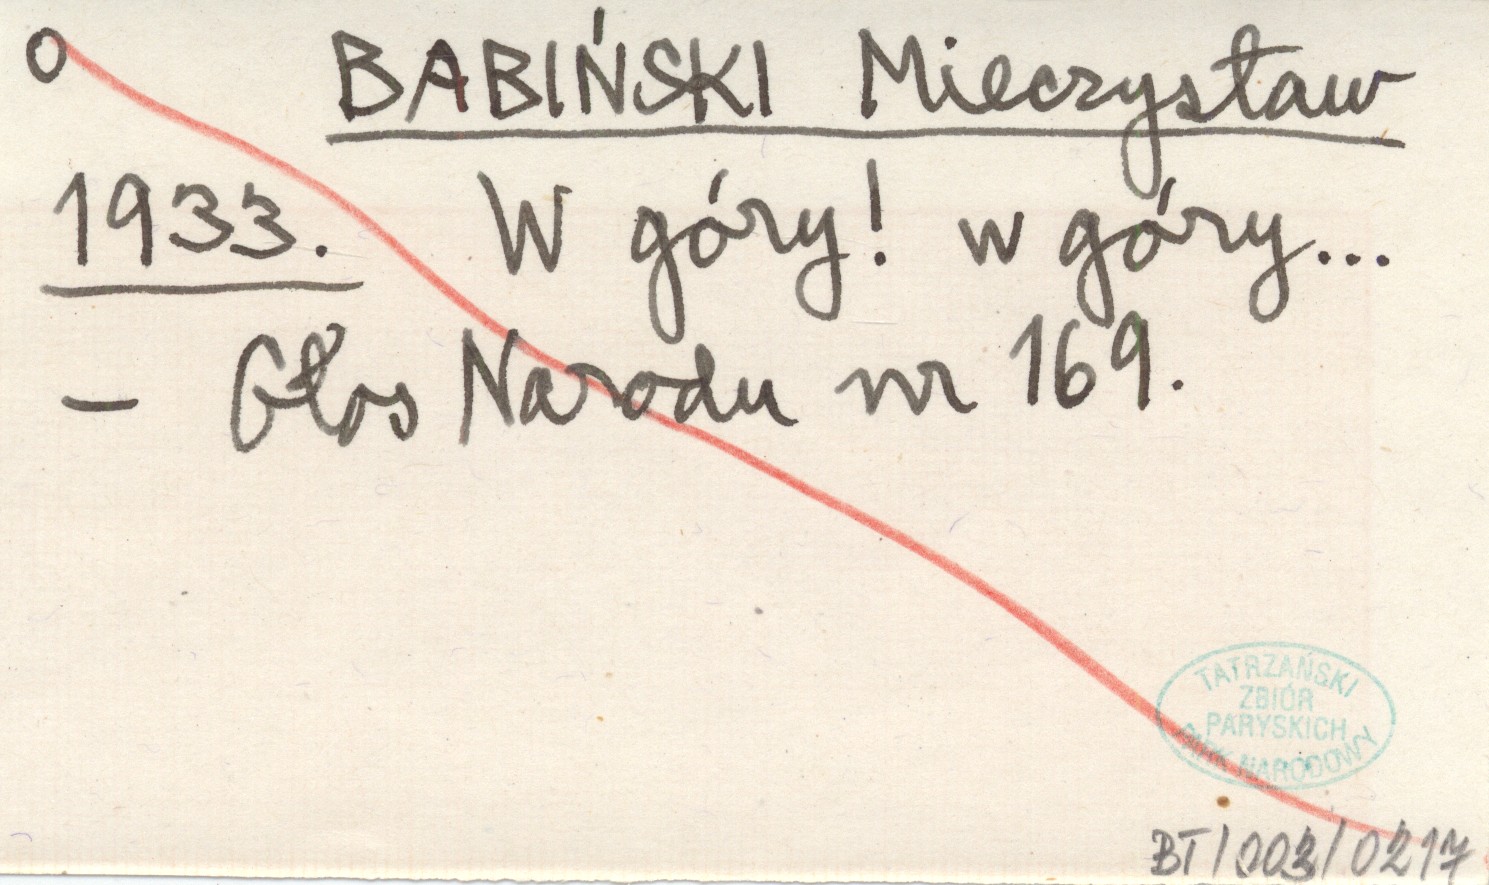 O BABIŃSKI Mieczysław
1933. W góry! w góry...
– Głos Narodu nr 169.
TATRZAŃSKI
ZBIÓR
PARYSKICH
PARK NARODOWY
BT/003/0217